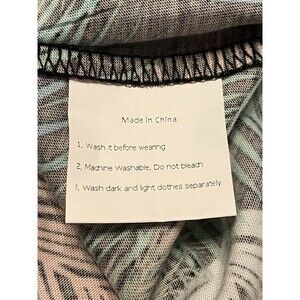 Made in China
1, Wash it before wearing
2, Machine Washable, Do not bleach
3, Wash dark and light clothes separately